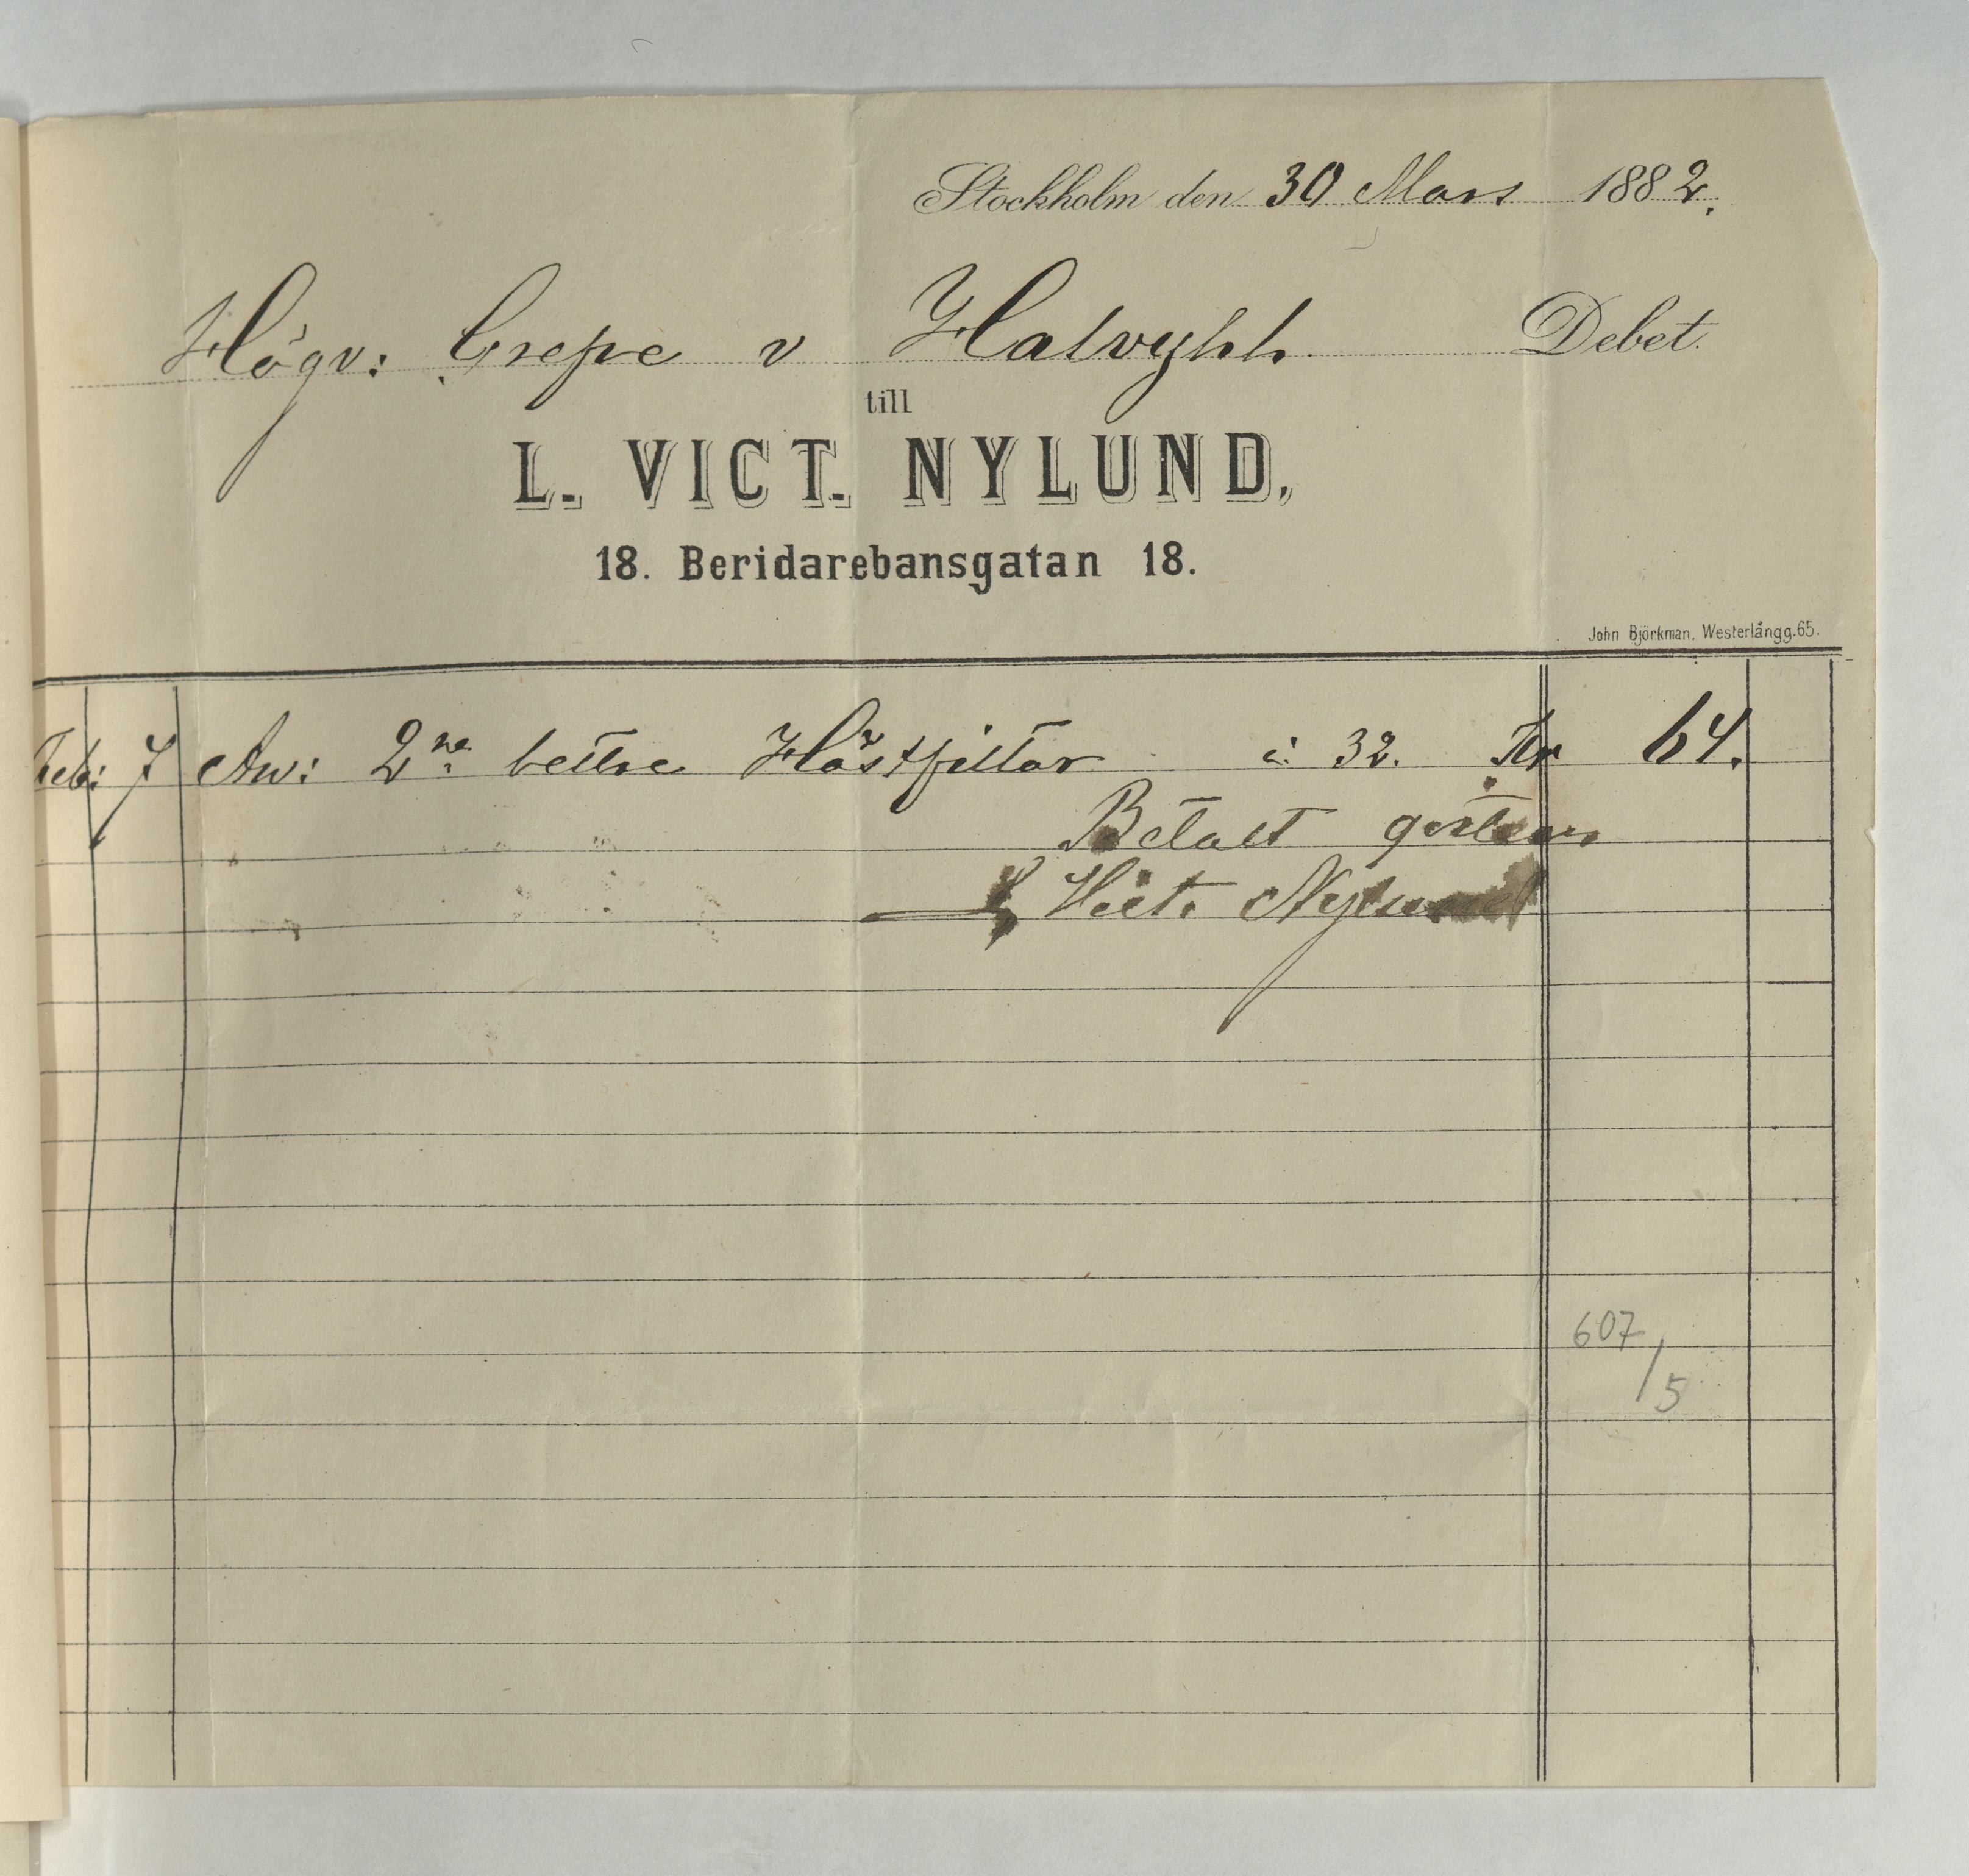 Stockholm den 30 Mars 1882.
Högv: Grefve v Halvyhl. Debet.
till
L. VICT. NYLUND,
18. Beridarebansgatan 18.
John Björkman, Westerlångg. 65.
Feb: 7 Aw: 2ne bettre Hästfiltar à 32. Kr 64.
Betalt
L Vict. Nylund
607/5